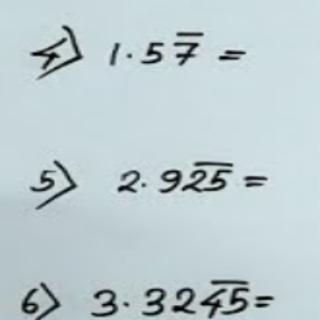 4) 1.57̅ =
5) 2.92̅5̅ =
6) 3.324̅5̅ =